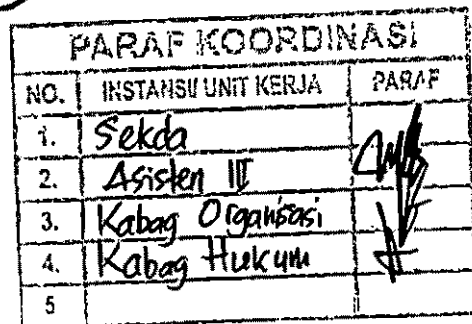 PARAF KOORDINASI
NO. INSTANSI/ UNIT KERJA PARAF
1. Sekda
2. Asisten III
3. Kabag Organisasi
4. Kabag Hukum
5